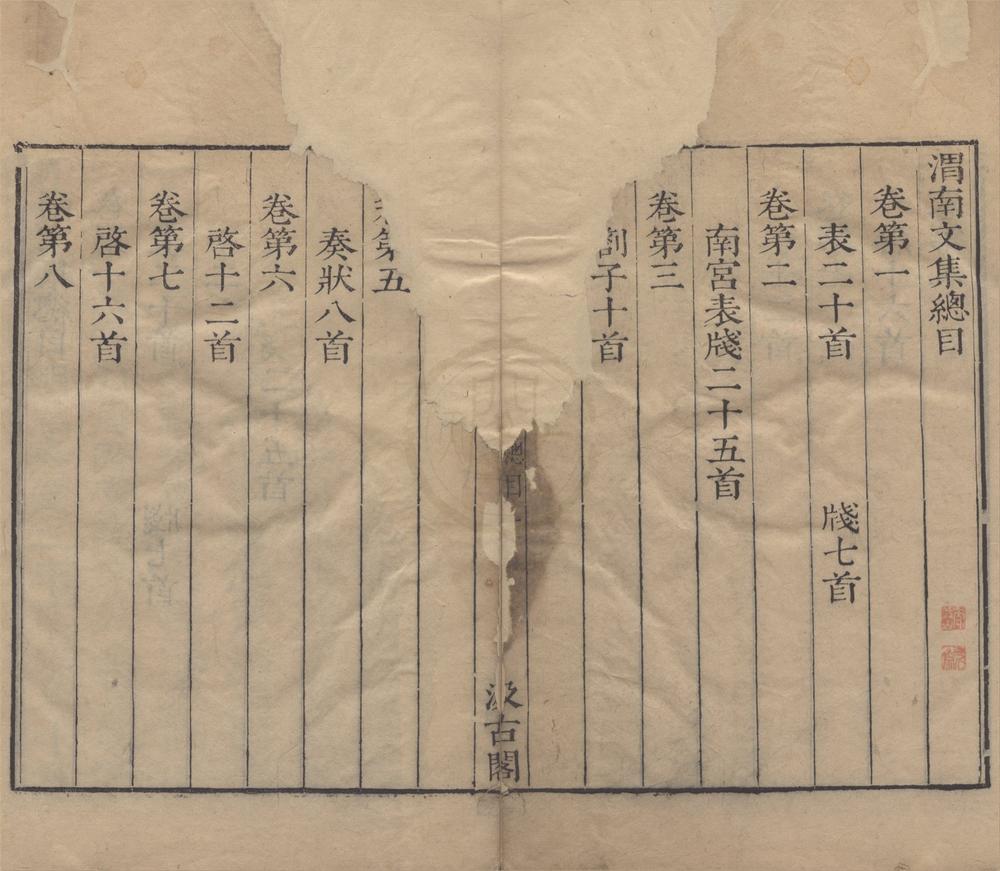 渭南文集總目
卷第一
表二十首 牋七首
卷第二
南宮表牋二十五首
卷第三
劄子十首
總目
汲古閣
第五
奏狀八首
卷第六
啓十二首
卷第七
啓十六首
卷第八